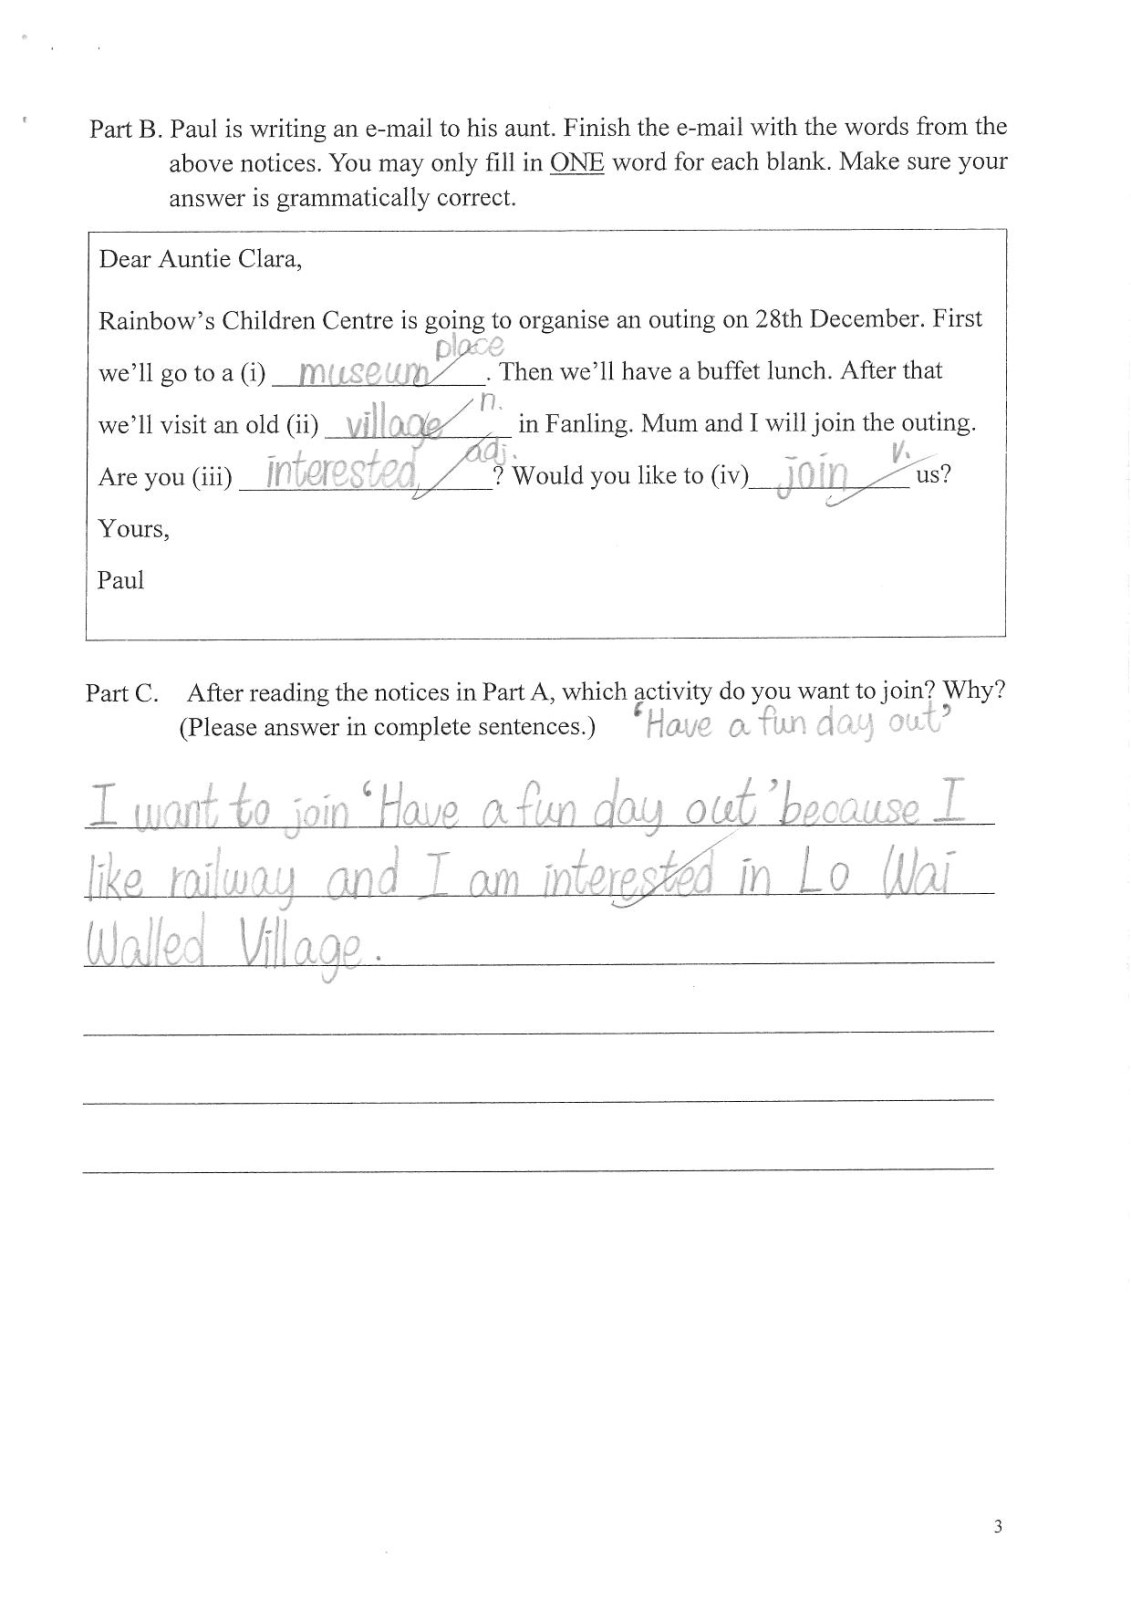 Part B. Paul is writing an e-mail to his aunt. Finish the e-mail with the words from the
above notices. You may only fill in ONE word for each blank. Make sure your
answer is grammatically correct.
Dear Auntie Clara,
Rainbow's Children Centre is going to organise an outing on 28th December. First
place
we'll go to a (i) museum. Then we'll have a buffet lunch. After that
n.
we'll visit an old (ii) village in Fanling. Mum and I will join the outing.
adj. v.
Are you (iii) interested? Would you like to (iv) join us?
Yours,
Paul
Part C. After reading the notices in Part A, which activity do you want to join? Why?
(Please answer in complete sentences.) 'Have a fun day out'
I want to join 'Have a fun day out' because I
like railway and I am interested in Lo Wai
Walled Village.
3